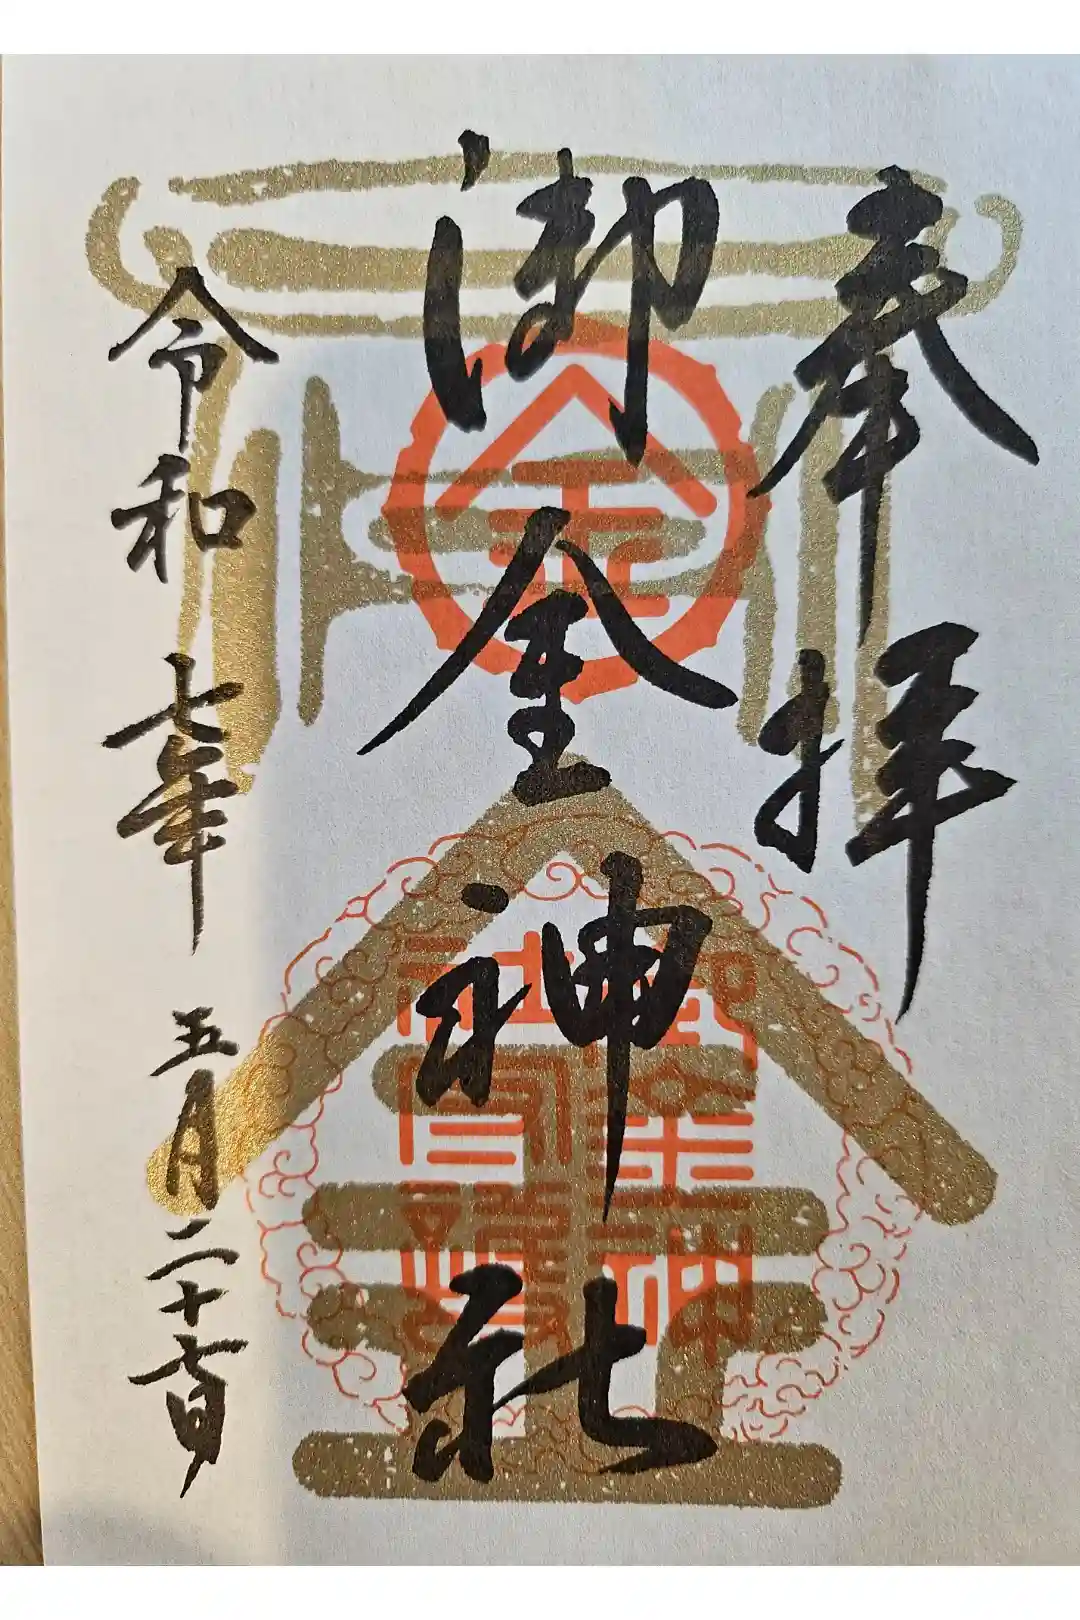 奉拝
御金神社
令和七年五月二十七日
金
御金神社